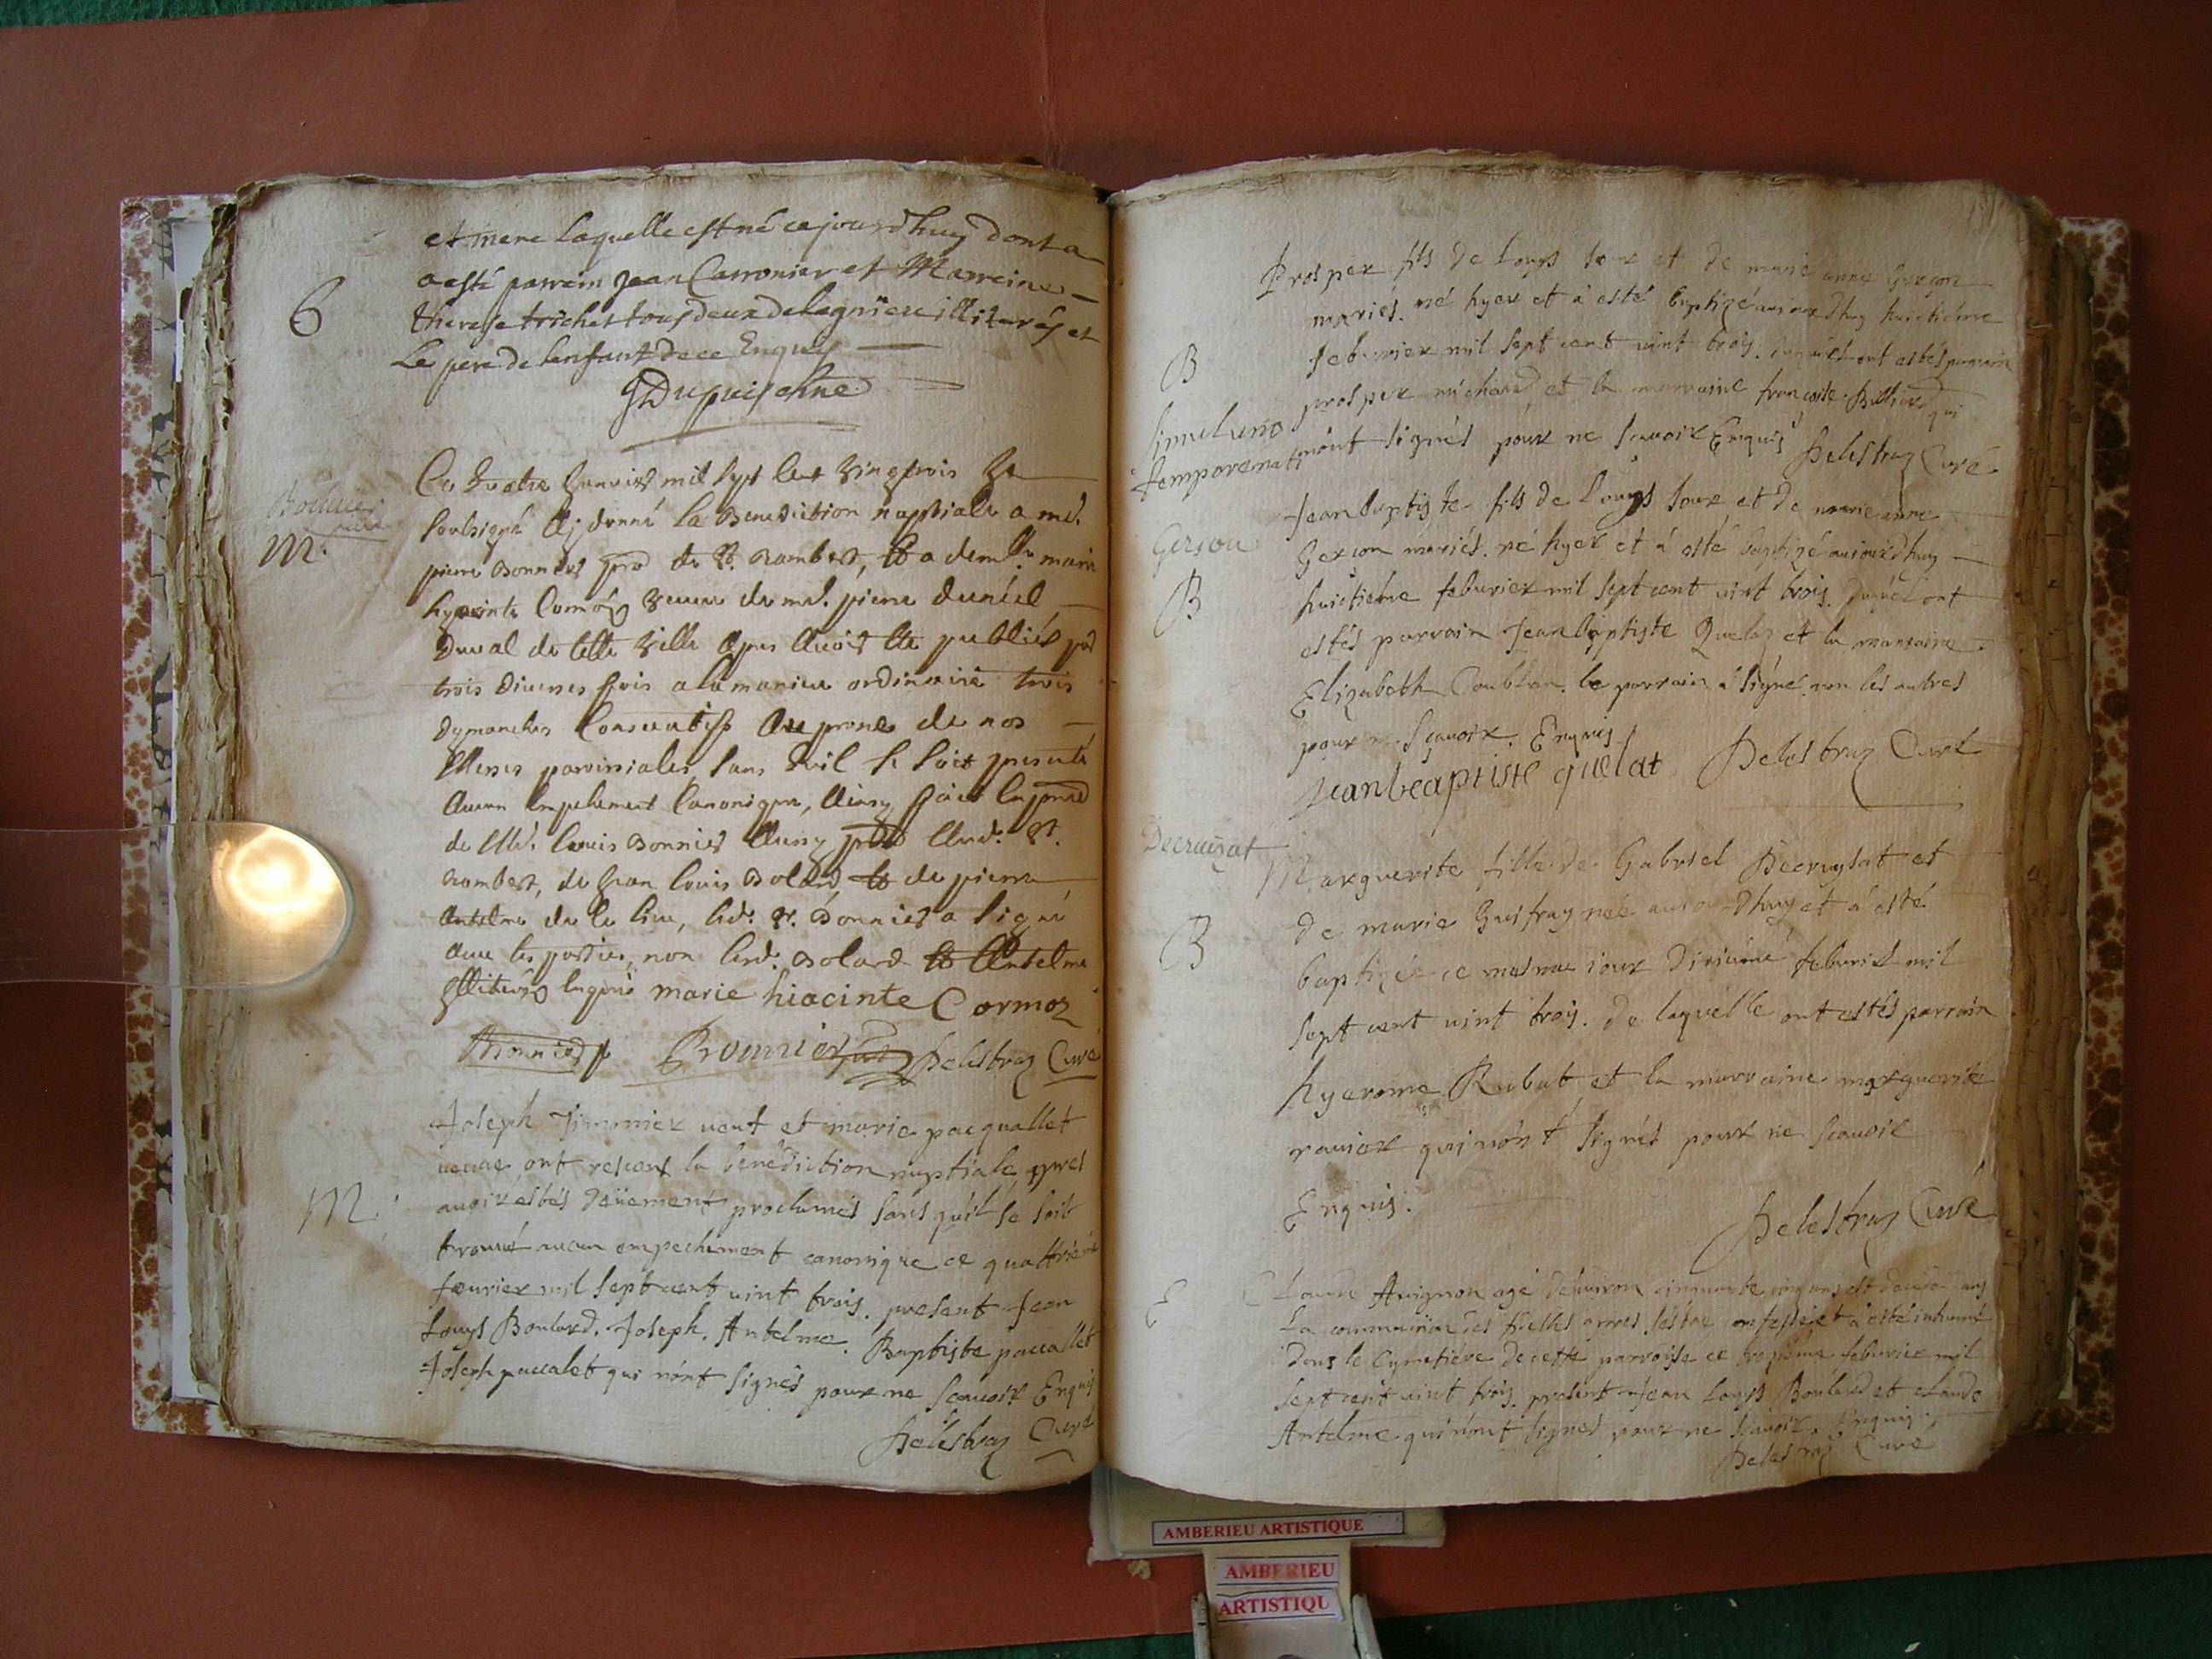 et mere laquelle est né cejourdhuy dont a
a esté parrein Jean Carronier et Marreine
6
therese trichet tous deux delagniere illiterés et
Le pere de lenfant de ce Enquis
Ce quatre Janvier mil sept cent vingtrois Je
soubsigné ay donné la Benediction nuptiale a md.
M.
pierre Bonnier de St. Rambert, et a demlle marie
hyacinte veuve de md. pierre
duval de cette ville apres avoir été publiés par
trois diverses fois a la maniere ordinaire trois
dymanches consecutifs au prone de nos
Messes parroissiales, sans quil se soit presenté
aucun empechement canonique, ainsy fait en presence
de Md. Louis Bonnier St.
Rambert, de Jean Louis Bolard et de pierre
Antelme de ce lieu, led. Sr. Bonnier a signé
avec les parties, non led. Bolard et Antelme
illiterés enquis marie hiacinte Cormoz
Delestraz Curé
Joseph Simonier veuf et marie pacquallet
veuve ont resceus la benédiction nuptiale, apres
M.
avoir estés deüement proclamés sans quil se soit
trouvé aucun empechement canonique ce quattriéme
feuvrier mil sept cent vint trois. present Jean
Louys Boulard. Joseph. Antelme. Baptiste paccallet
Joseph paccalet qui nónt signés pour ne scauoir Enquis
Delestraz Curé
Prosper fils de Louys et de marie anne Gerçon
mariés. né hyer et á esté baptizé aujourdhuy huictiéme
feburier mil sept cent vint trois. duquel ont estés parrain
B
prosper michaud et la marraine françoise qui
simul uno
nónt signés pour ne scavoir Enquis Delestraz Curé
Jean baptiste fils de Louys et de marie anne
Gerson
Gercon mariés. né hyer et á esté baptizé aujourdhuy
B
huictiéme feburier mil sept cent vint trois. duquel ont
estés parrain Jean baptiste Quelaz et la marraine
Elizabeth le parrain á signé non les autres
pour ne sçavoir. Enquis
Jean beaptiste quelat Delestraz Curé
Decruisat
Marguerite fille de Gabriel Decruysat et
de marie née aujourdhuy et á esté
B
baptizée ce mesme jour dixiéme feburier mil
sept cent vint trois. de laquelle ont estés parrain
hyerome Rubat et la marraine marguerite
ravier qui nónt signés pour ne scavoir
Enquis.
Delestraz Curé
E
Claude Avignon agé denviron cinquante cinq ans est decedé dans
La communion des fidelles apres séstre confessé et á esté inhumé
dans le Cymetiére de cette parroisse ce troysiéme feburier mil
sept cent vint trois. present Jean Louys Boulard et claude
Antelme qui nónt signés pour ne scavoir. Enquis.
Delestraz Curé
AMBERIEU ARTISTIQUE
AMBERIEU
ARTISTIQU